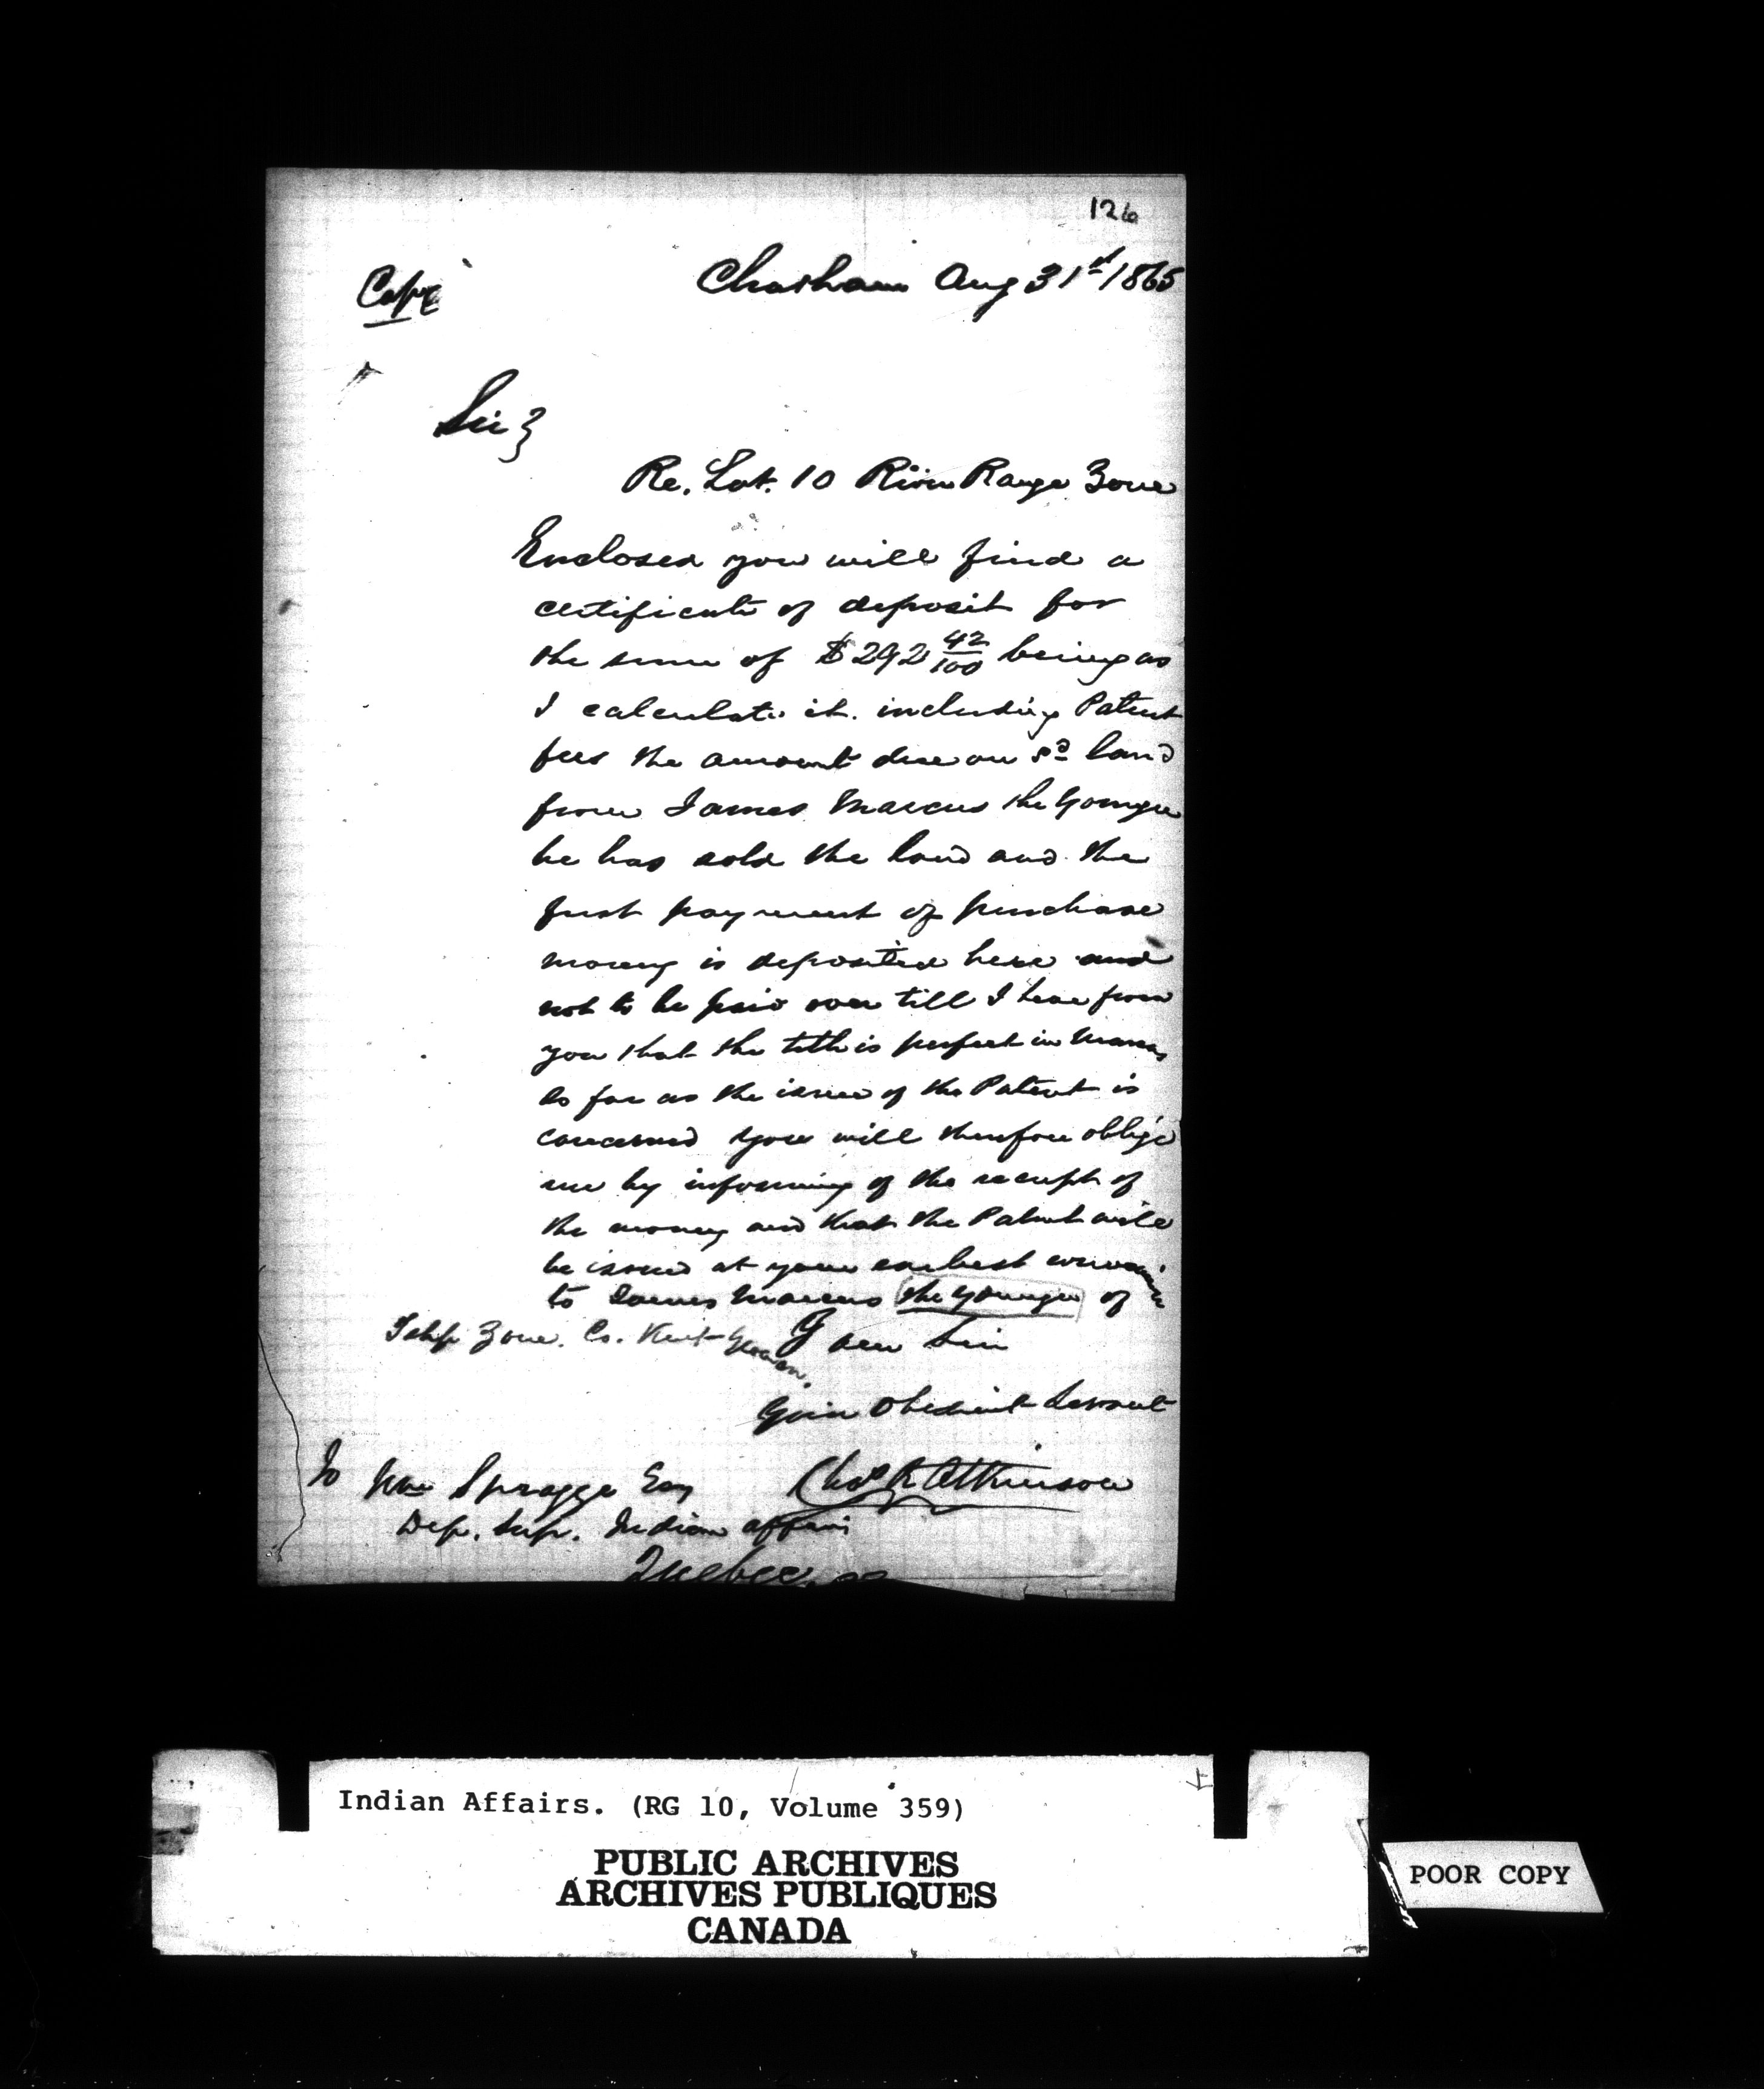 126
Copy
Chatham Aug 31st 1865
Sir}
Re. Lot. 10 River Range Zone
Enclosed you will find a
certificate of deposit for
the sum of $292 42/100 being as
I calculate it. including Patent
fees the amount due on sd land
from James Marcus the Younger
he has sold the land and the
first payment of purchase
money is deposited here and
not to be paid over till I hear from
you that the title is perfect in Marcus
as far as the issue of the Patent is
concerned you will therefore oblige
me by informing of the receipt of
the money and that the Patent will
be issued at your earliest convenience
to James Marcus the younger of
Tship Zone. Co. Kent Yeoman.
I am Sir
Your Obedient Servant
Chas R Atkinson
To Wm Spragge Esq
Dep. Sup. Indian affairs
Quebec.
Indian Affairs. (RG 10, Volume 359)
PUBLIC ARCHIVES
ARCHIVES PUBLIQUES
CANADA
POOR COPY